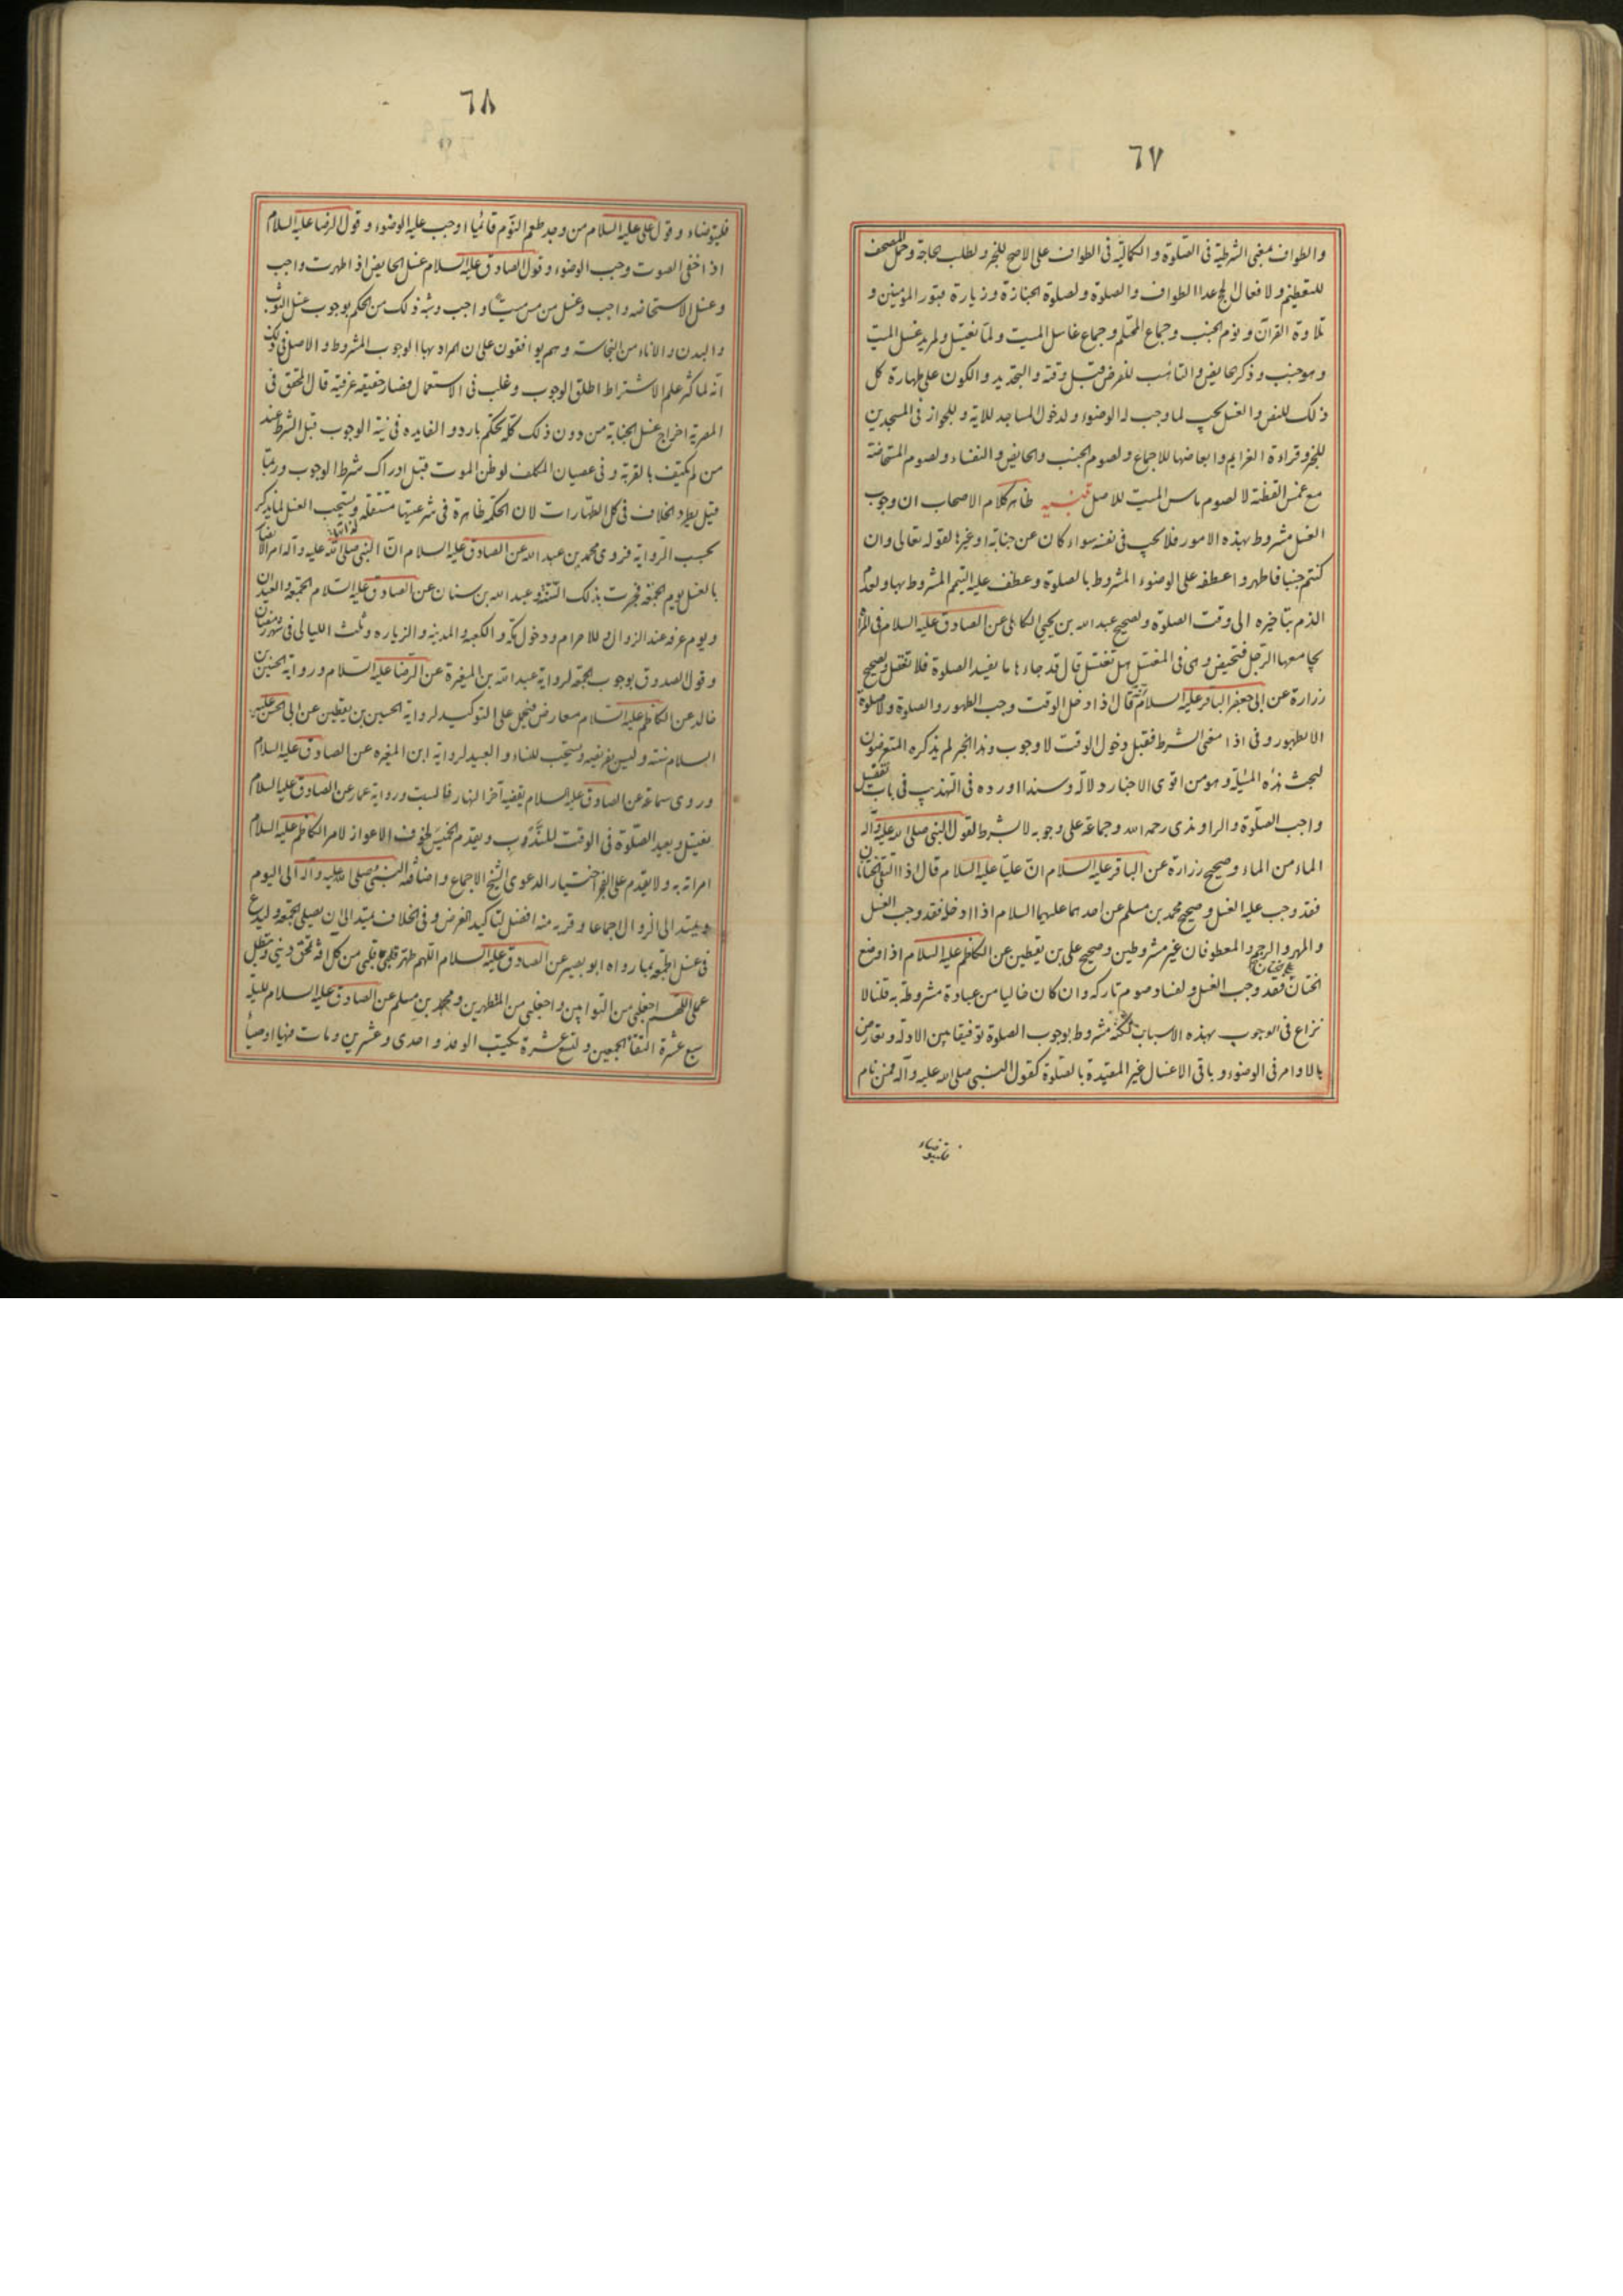 ٦٧
والطواف معنى الشرطية فى الصلوة والكمالية فى الطواف على الاصح للخبر ولطلب حاجة وحمل المصحف
للتعظيم ولافعال الحج عدا الطواف والصلوة ولصلوة الجنازة وزيارة قبور المومنين و
تلاوة القرآن ونوم الجنب وجماع المحتلم وجماع غاسل الميت ولما يغتسل ولمريد غسل الميت
وهو جنب وذكر حايض والتاهب للفرض قبل وقته والتجديد والكون على طهارة كل
ذلك للنص والغسل يجب لما وجب له الوضوء ولدخول المساجد للاية وللجواز فى المسجدين
للخبر وقراءة العزايم وابعاضها للاجماع ولصوم الجنب والحايض والنفساء ولصوم المستحاضة
مع غمس القطنة لا لصوم ماس الميت للاصل تنبيه ظاهر كلام الاصحاب ان وجوب
الغسل مشروط بهذه الامور فلا يجب فى نفسه سواء كان عن جنابة او غيرها لقوله تعالى وان
كنتم جنبا فاطهروا عطفه على الوضوء المشروط بالصلوة وعطف عليه التيمم المشروط بها ولعدم
الذم بتاخيره الى وقت الصلوة ولصحيح عبد الله بن يحيى الكاهلى عن الصادق عليه السلام فى المراة
يجامعها الرجل فتحيض وهى فى المغتسل هل تغتسل قال قد جاءها ما يفسد الصلوة فلا تغتسل ولصحيح
زرارة عن ابى جعفر الباقر عليه السلام قال اذا دخل الوقت وجب الطهور والصلوة ولا صلوة
الا بطهور وفى اذا معنى الشرط فقبل دخول الوقت لا وجوب وهذا الخبر لم يذكره المتعرضون
لبحث هذه المسئلة وهو من اقوى الاخبار دلالة وسندا اورده فى التهذيب فى باب تفصيل
واجب الصلوة والراوندى رحمه الله وجماعة على وجوبه لا بشرط لقول النبى صلى الله عليه وآله
الماء من الماء وصحيح زرارة عن الباقر عليه السلام ان عليا عليه السلام قال اذا التقى الختانان
فقد وجب عليه الغسل وصحيح محمد بن مسلم عن احدهما عليهما السلام اذا ادخله فقد وجب الغسل
والمهر والرجم والمعطوفان غير مشروطين وصحيح على بن يقطين عن الكاظم عليه السلام اذا وضع
الختان على الختان فقد وجب الغسل ولفساد صوم تاركه وان كان خاليا من عبادة مشروطة به قلنا لا
نزاع فى الوجوب بهذه الاسباب لكنه مشروط بوجوب الصلوة توفيقا بين الادلة ويعارض
بالاوامر فى الوضوء وباقى الاغسال غير المقيدة بالصلوة كقول النبى صلى الله عليه وآله فمن نام
فليتوضاء
٦٨
فليتوضاء وقول على عليه السلام من وجد طعم النوم قائما او وجب عليه الوضوء وقول الرضا عليه السلام
اذا خفى الصوت وجب الوضوء وقول الصادق عليه السلام غسل الحايض اذا طهرت واجب
وغسل الاستحاضه واجب وغسل من مس ميتا واجب وشبه ذلك من الحكم بوجوب غسل الثوب
والبدن والاناء من النجاسة وهم يوافقون على ان المراد بها الوجوب المشروط والاصل فى ذلك
انه لما كثر علم الاشتراط اطلق الوجوب وغلب فى الاستعمال فصار حقيقه عرفيه قال المحقق فى
المصريه اخراج غسل الجنابة من دون ذلك كله تحكم بارد والفايده فى نية الوجوب قبل الشرط عند
من لم يكتف بالقربة وفى عصيان المكلف لو ظن الموت قبل ادراك شرط الوجوب وربما
قيل بطرد الخلاف فى كل الطهارات لان الحكمة ظاهرة فى شرعيتها مستقلة ويستحب الغسل لما يذكر
بحسب الرواية فروى محمد بن عبد الله عن الصادق عليه السلام ان النبى صلى الله عليه وآله امر الانصار
بالغسل يوم الجمعة فجرت بذلك السنة وعبد الله بن سنان عن الصادق عليه السلام الجمعة والعيدان
ويوم عرفه عند الزوال وللاحرام ودخول مكة والكعبة والمدينة والزياره وثلث الليالى فى شهر رمضان
وقول الصدوق بوجوب الجمعة لرواية عبد الله بن المغيرة عن الرضا عليه السلام ورواية الحسين بن
خالد عن الكاظم عليه السلام معارض فيحمل على التوكيد لرواية الحسين بن يقطين عن ابى الحسن عليه
السلام سنة وليس بفريضه ويستحب للنساء والعبيد لرواية ابن المغيره عن الصادق عليه السلام
وروى سماعة عن الصادق عليه السلام يقضيه آخر النهار فالسبت ورواية عمار عن الصادق عليه السلام
يغتسل ويعيد الصلوة فى الوقت للندب ويقدم الخميس لخوف الاعواز لامر الكاظم عليه السلام
امراته به ولا يقدم على الفجر اختيارا لدعوى الشيخ الاجماع واضافة النبى صلى الله عليه وآله الى اليوم
ويمتد الى الزوال اجماعا وقربه منه افضل لتاكيد الغرض وفى الخلاف يمتد الى ان يصلى الجمعة وليدع
فى غسل الجمعة بما رواه ابو بصير عن الصادق عليه السلام اللهم طهر قلبى من كل افة تمحق دينى وتبطل
عملى اللهم اجعلنى من التوابين واجعلنى من المتطهرين ومحمد بن مسلم عن الصادق عليه السلام لليلة
سبع عشرة التقاء الجمعين وتسع عشرة يكتب الوفد واحدى وعشرين ومات فيها اوصياء